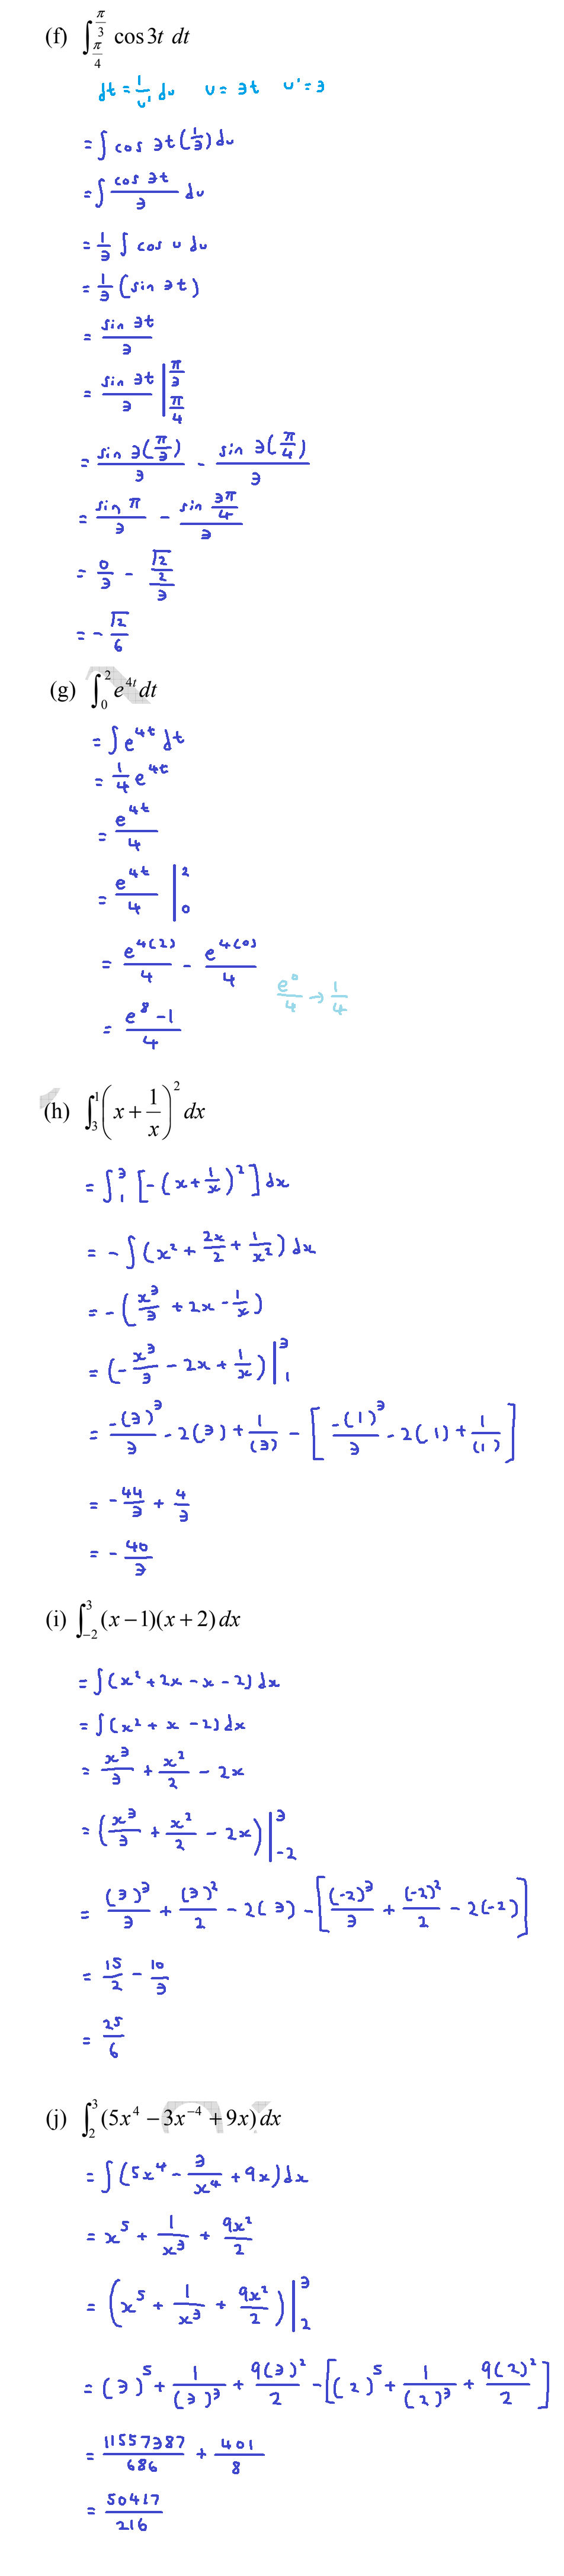 (f) ∫_{π/4}^{π/3} cos 3t dt
dt = 1/u' du   u = 3t   u' = 3
= ∫ cos 3t (1/3) du
= ∫ (cos 3t)/3 du
= 1/3 ∫ cos u du
= 1/3 (sin 3t)
= (sin 3t)/3
= (sin 3t)/3 |_{π/4}^{π/3}
= (sin 3(π/3))/3 - (sin 3(π/4))/3
= (sin π)/3 - (sin 3π/4)/3
= 0/3 - (√2/2)/3
= - √2/6
(g) ∫_0^2 e^{4t} dt
= ∫ e^{4t} dt
= 1/4 e^{4t}
= e^{4t}/4
= e^{4t}/4 |_0^2
= e^{4(2)}/4 - e^{4(0)}/4
e^0/4 → 1/4
= (e^8 - 1)/4
(h) ∫_3^1 (x + 1/x)^2 dx
= ∫_1^3 [-(x + 1/x)^2] dx
= - ∫ (x^2 + 2x/2 + 1/x^2) dx
= - (x^3/3 + 2x - 1/x)
= (- x^3/3 - 2x + 1/x) |_1^3
= -(3)^3/3 - 2(3) + 1/(3) - [-(1)^3/3 - 2(1) + 1/(1)]
= - 44/3 + 4/3
= - 40/3
(i) ∫_{-2}^3 (x - 1)(x + 2) dx
= ∫ (x^2 + 2x - x - 2) dx
= ∫ (x^2 + x - 2) dx
= x^3/3 + x^2/2 - 2x
= (x^3/3 + x^2/2 - 2x) |_{-2}^3
= (3)^3/3 + (3)^2/2 - 2(3) - [(-2)^3/3 + (-2)^2/2 - 2(-2)]
= 15/2 - 10/3
= 25/6
(j) ∫_2^3 (5x^4 - 3x^{-4} + 9x) dx
= ∫ (5x^4 - 3/x^4 + 9x) dx
= x^5 + 1/x^3 + 9x^2/2
= (x^5 + 1/x^3 + 9x^2/2) |_2^3
= (3)^5 + 1/(3)^3 + 9(3)^2/2 - [(2)^5 + 1/(2)^3 + 9(2)^2/2]
= 11557387/686 + 401/8
= 50417/216